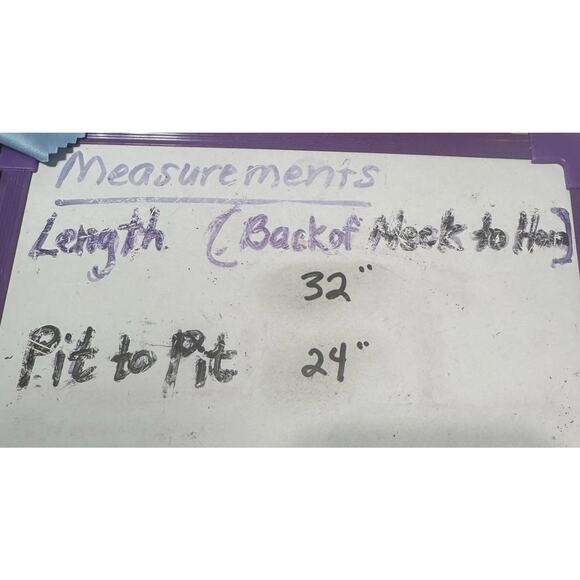 Measurements
Length (Back of Neck to Hem)
32"
Pit to Pit 24"